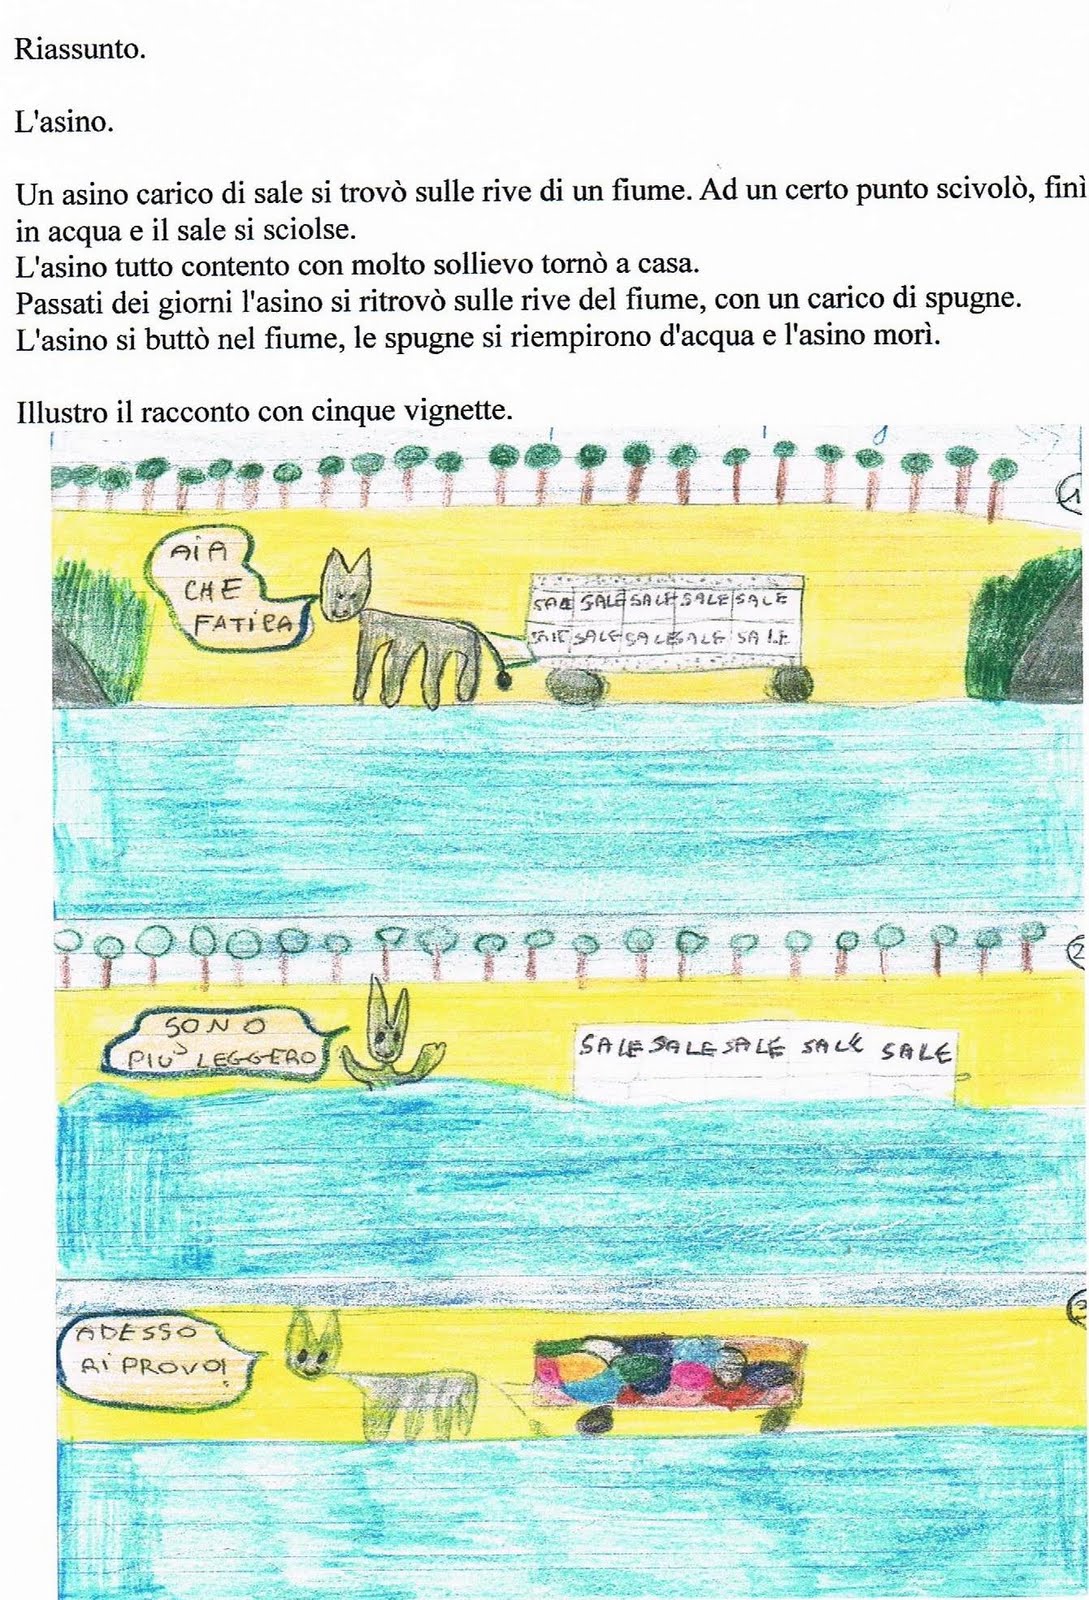 Riassunto.
L'asino.
Un asino carico di sale si trovò sulle rive di un fiume. Ad un certo punto scivolò, finì
in acqua e il sale si sciolse.
L'asino tutto contento con molto sollievo tornò a casa.
Passati dei giorni l'asino si ritrovò sulle rive del fiume, con un carico di spugne.
L'asino si buttò nel fiume, le spugne si riempirono d'acqua e l'asino morì.
Illustro il racconto con cinque vignette.
1
AIA
CHE
FATICA
SALE SALE SALE SALE SALE
SALE SALE SALE SALE SALE
2
SONO
PIÙ LEGGERO
SALE SALE SALE SALE SALE
3
ADESSO
RIPROVO!